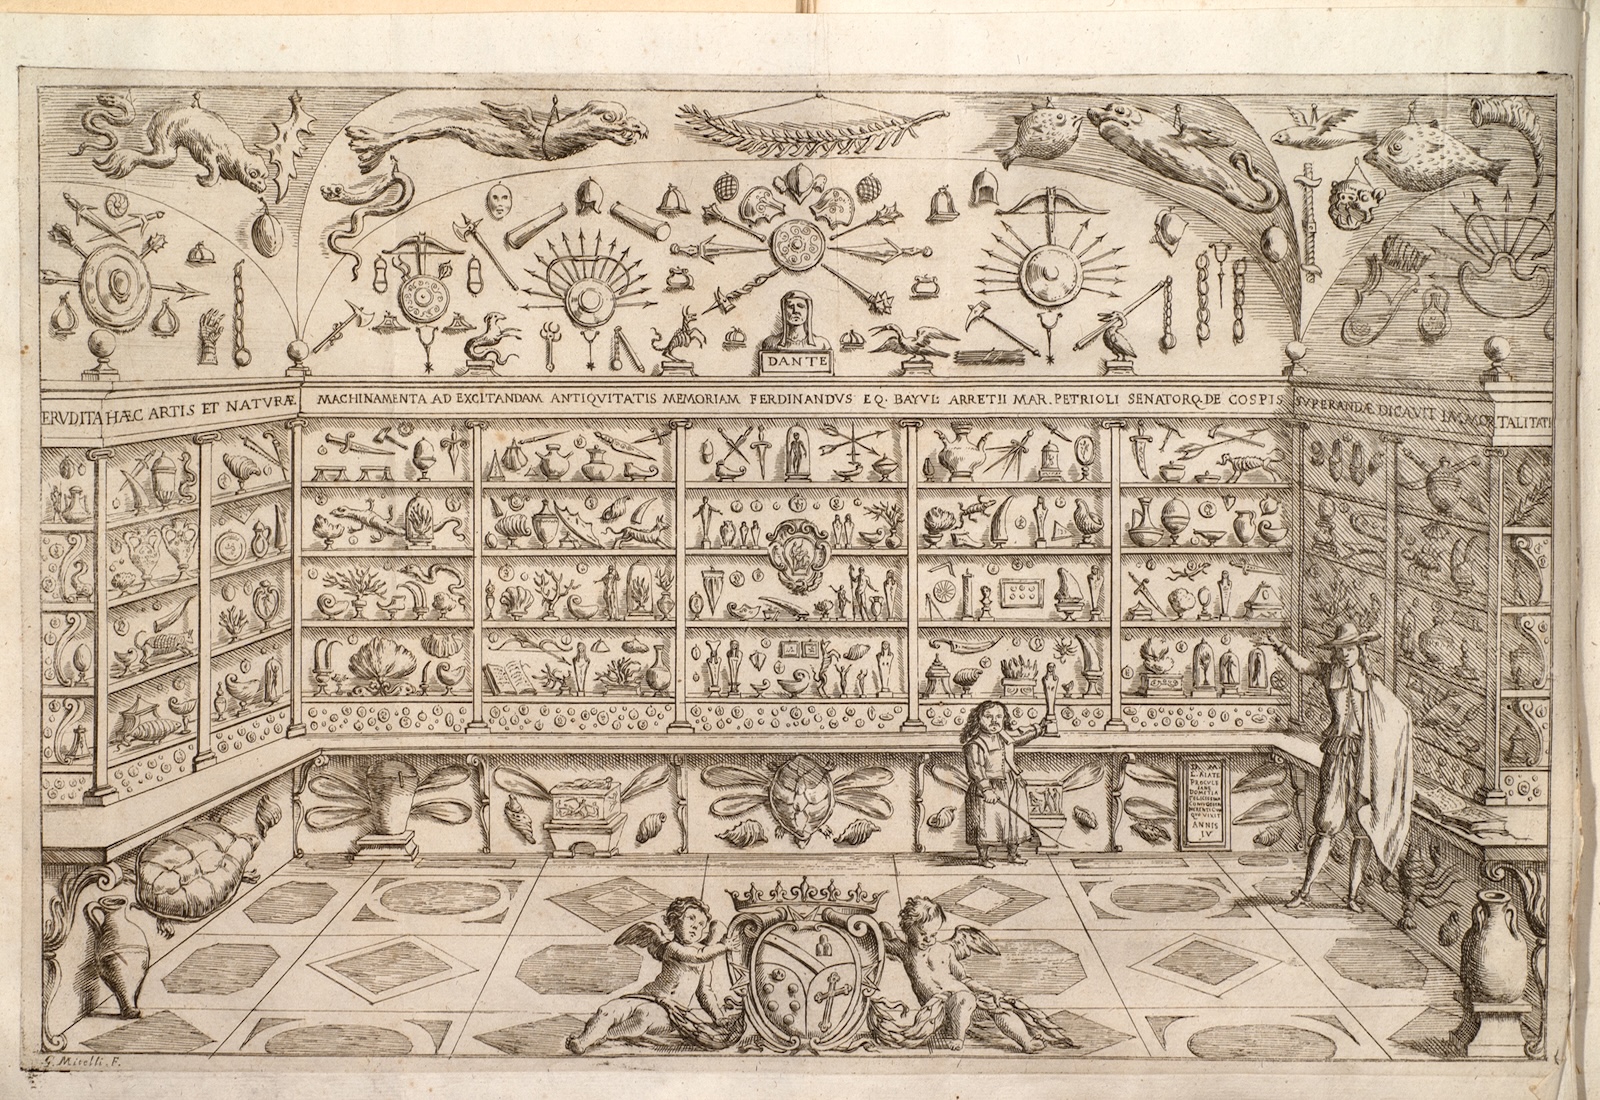 DANTE
ERVDITA HÆC ARTIS ET NATVRÆ MACHINAMENTA AD EXCITANDAM ANTIQVITATIS MEMORIAM FERDINANDVS EQ. BAYVL. ARRETII MAR. PETRIOLI SENATORQ. DE COSPIS SVPERANDÆ DICAVIT IMMORTALITATI
D. M
ANNIS
IV
G. Mitelli. F.